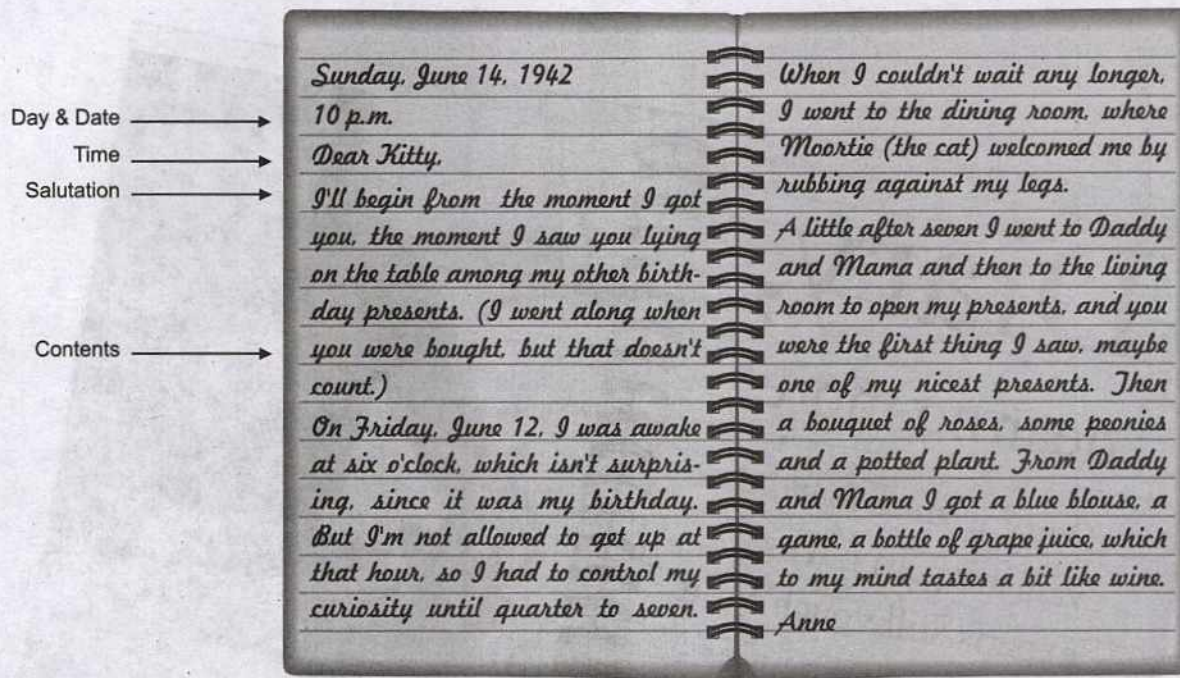 Day & Date
Time
Salutation
Contents
Sunday, June 14, 1942
10 p.m.
Dear Kitty,
I'll begin from the moment I got
you, the moment I saw you lying
on the table among my other birth-
day presents. (I went along when
you were bought, but that doesn't
count.)
On Friday, June 12, I was awake
at six o'clock, which isn't surpris-
ing, since it was my birthday.
But I'm not allowed to get up at
that hour, so I had to control my
curiosity until quarter to seven.
When I couldn't wait any longer,
I went to the dining room, where
Moortie (the cat) welcomed me by
rubbing against my legs.
A little after seven I went to Daddy
and Mama and then to the living
room to open my presents, and you
were the first thing I saw, maybe
one of my nicest presents. Then
a bouquet of roses, some peonies
and a potted plant. From Daddy
and Mama I got a blue blouse, a
game, a bottle of grape juice, which
to my mind tastes a bit like wine.
Anne